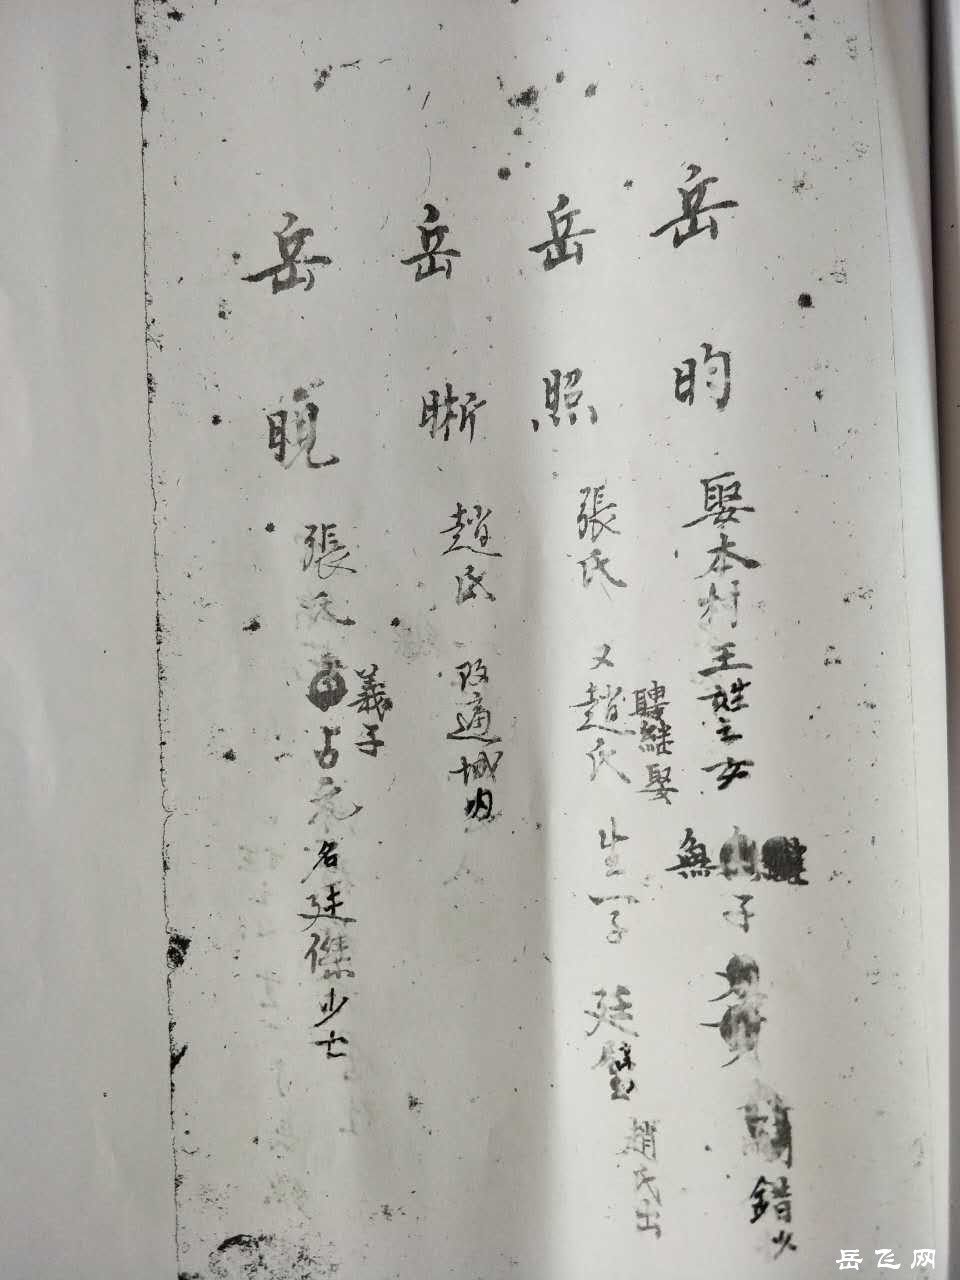 岳昀娶本村王姓之女無子錯少
岳照張氏又趙氏生一子廷璧趙氏出
聘継娶
岳晰趙氏改適城内
岳晛張氏占元名廷傑少亡
義子
岳飞网